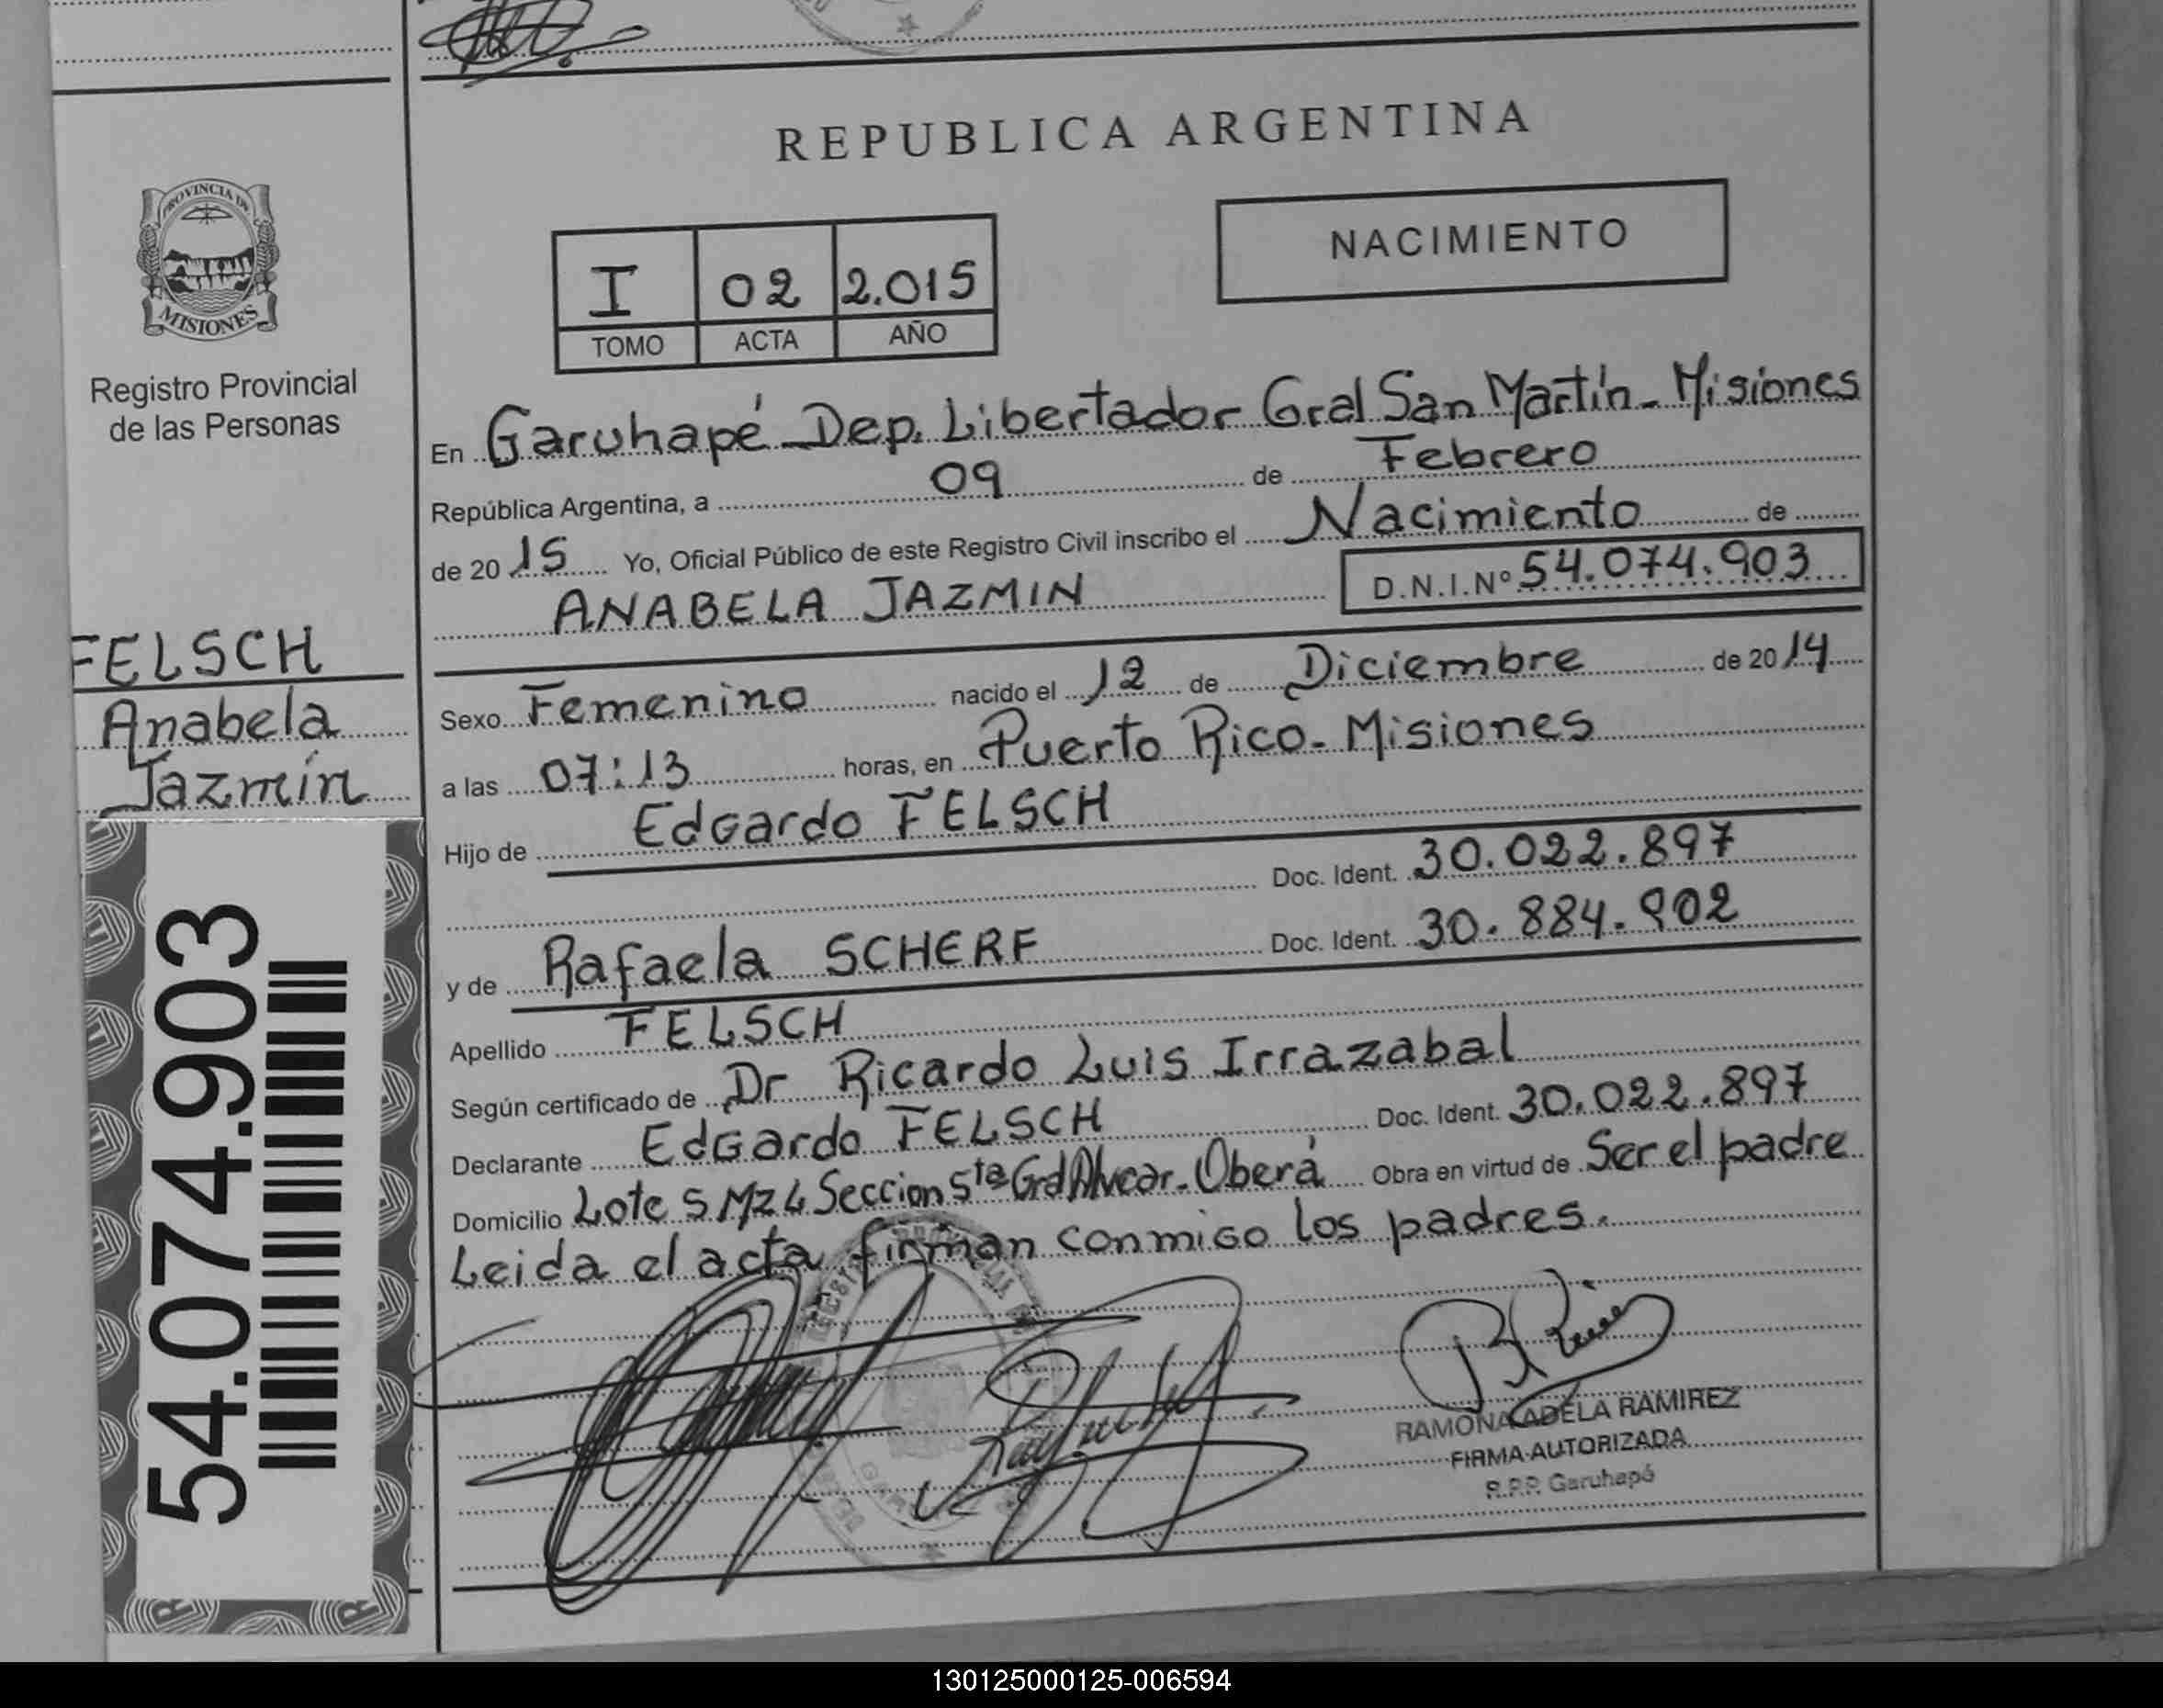 REPUBLICA ARGENTINA
PROVINCIA DE
MISIONES
Registro Provincial
de las Personas
NACIMIENTO
I 02 2.015
TOMO ACTA AÑO
En Garuhapé - Dep. Libertador Gral San Martín - Misiones
República Argentina, a 09 de Febrero
de 20 15 Yo, Oficial Público de este Registro Civil inscribo el Nacimiento de
ANABELA JAZMIN D.N.I.Nº 54.074.903
FELSCH
Anabela
Jazmín
Sexo Femenino nacido el 12 de Diciembre de 20 14
a las 07:13 horas, en Puerto Rico - Misiones
Hijo de Edgardo FELSCH
Doc. Ident. 30.022.897
y de Rafaela SCHERF Doc. Ident. 30.884.902
Apellido FELSCH
Según certificado de Dr Ricardo Luis Irrazabal
Declarante Edgardo FELSCH Doc. Ident. 30.022.897
Domicilio Lote 5 Mz 4 Seccion 5ta Gral Alvear - Oberá Obra en virtud de Ser el padre
Leida el acta firman conmigo los padres.
54.074.903
RAMONA ADELA RAMIREZ
FIRMA AUTORIZADA
R.P.P. Garuhapé
130125000125-006594